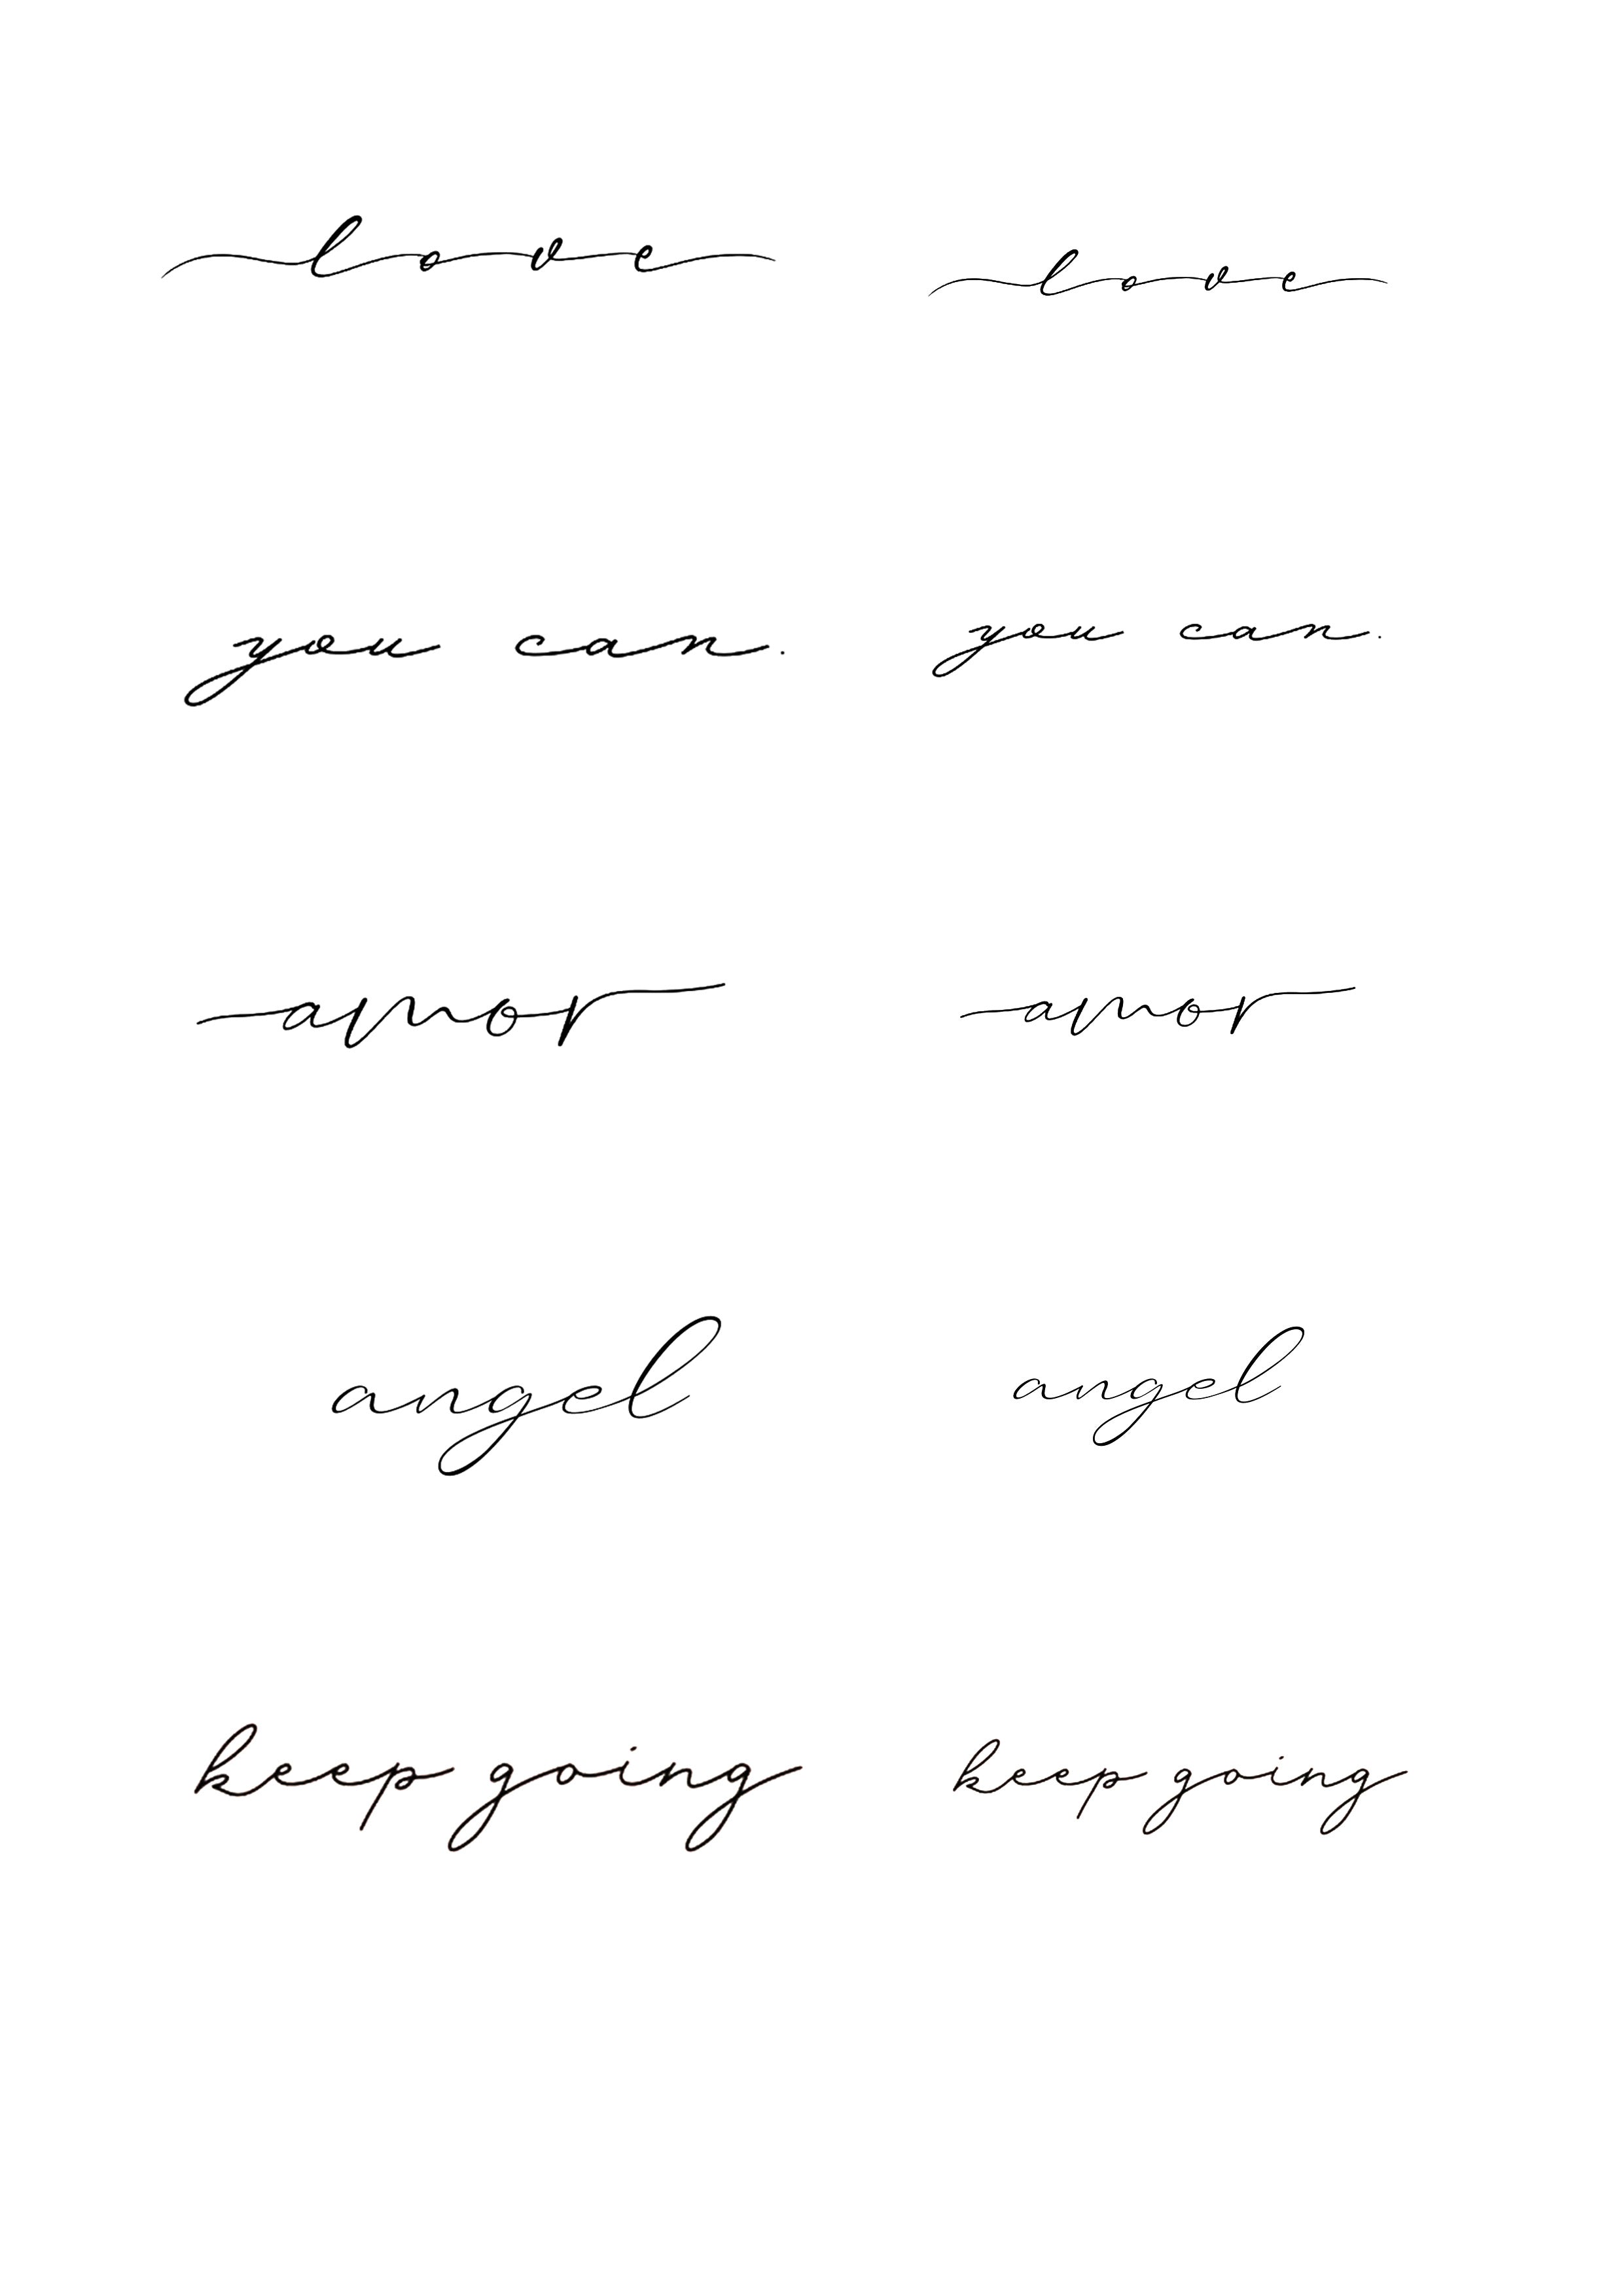 love love
you can. you can.
amor amor
angel angel
keep going keep going